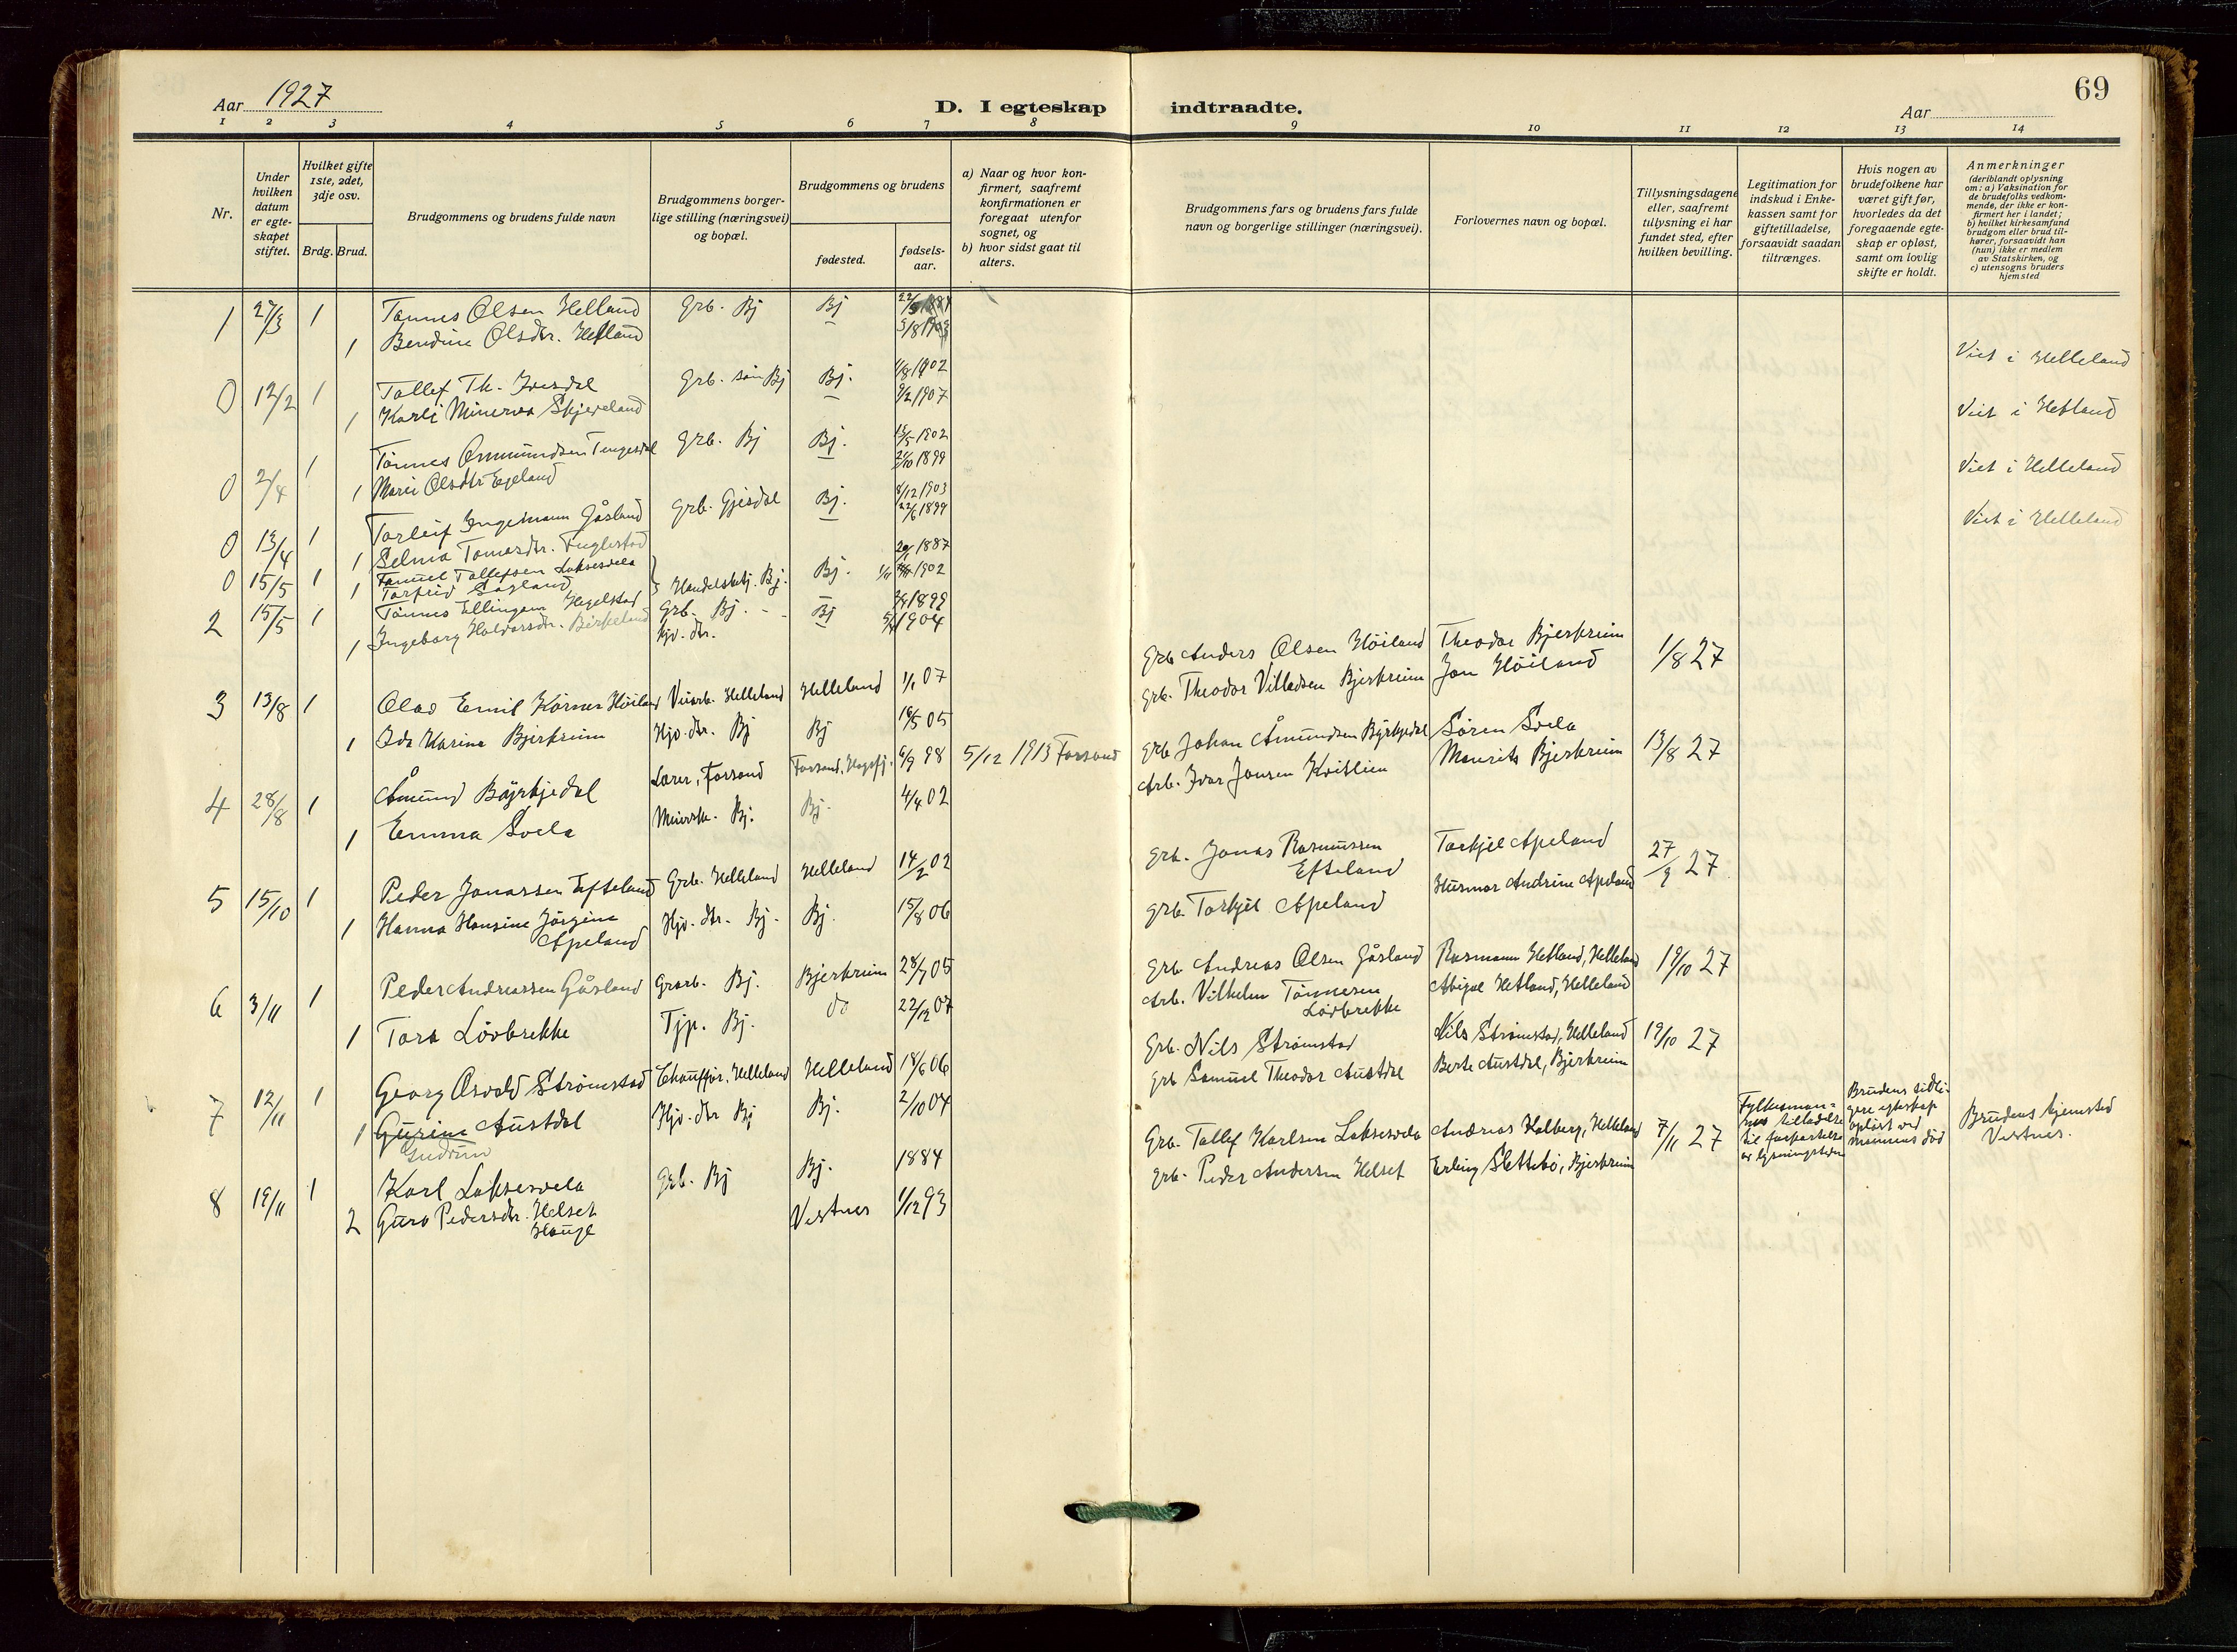 Aar 1927
D. I egteskap indtraadte.
Aar
69
1 2 3 4 5 6 7 8 9 10 11 12 13 14
Nr.
Under hvilken datum er egteskapet stiftet.
Hvilket gifte 1ste, 2det, 3dje osv.
Brdg. Brud.
Brudgommens og brudens fulde navn
Brudgommens borgerlige stilling (næringsvei) og bopæl.
Brudgommens og brudens
fødested.
fødselsaar.
a) Naar og hvor konfirmert, saafremt konfirmationen er foregaat utenfor sognet, og
b) hvor sidst gaat til alters.
Brudgommens fars og brudens fars fulde navn og borgerlige stillinger (næringsvei).
Forlovernes navn og bopæl.
Tillysningsdagene eller, saafremt tillysning ei har fundet sted, efter hvilken bevilling.
Legitimation for indskud i Enkekassen samt for giftetilladelse, forsaavidt saadan tiltrænges.
Hvis nogen av brudefolkene har været gift før, hvorledes da det foregaaende egteskap er opløst, samt om lovlig skifte er holdt.
Anmerkninger
(deriblandt oplysning om: a) Vaksination for de brudefolks vedkommende, der ikke er konfirmert her i landet; b) hvilket kirkesamfund brudgom eller brud tilhører, forsaavidt han (hun) ikke er medlem av Statskirken, og c) utensogns bruders hjemsted
1 27/3 1 Tønnes Olsen Helland Grb. Bj Bj
1 Bendine Olsdtr. Hetland –
Viet i Helleland
0 12/2 1 Tollef Th. Ivesdal Grb. søn Bj Bj. 1/8 1902
1 Karli Minerva Skjæveland – 9/2 1907
Viet i Hetland
0 2/4 1 Tønnes Ommundsen Tengesdal Grb. Bj Bj. 15/5 1902
1 Marei Olsdtr Egeland – 21/10 1899
Viet i Helleland
0 13/4 1 Torleif Ingemann Gåsland Grb. Gjesdal Bj. 8/12 1903
1 Selma Tomasdtr. Fuglestad – 22/6 1899
Viet i Helleland
0 15/5 1 Samuel Tollefsen Laksesvela Handelsbtj. Bj. Bj. 1887
1 Torfrid Sagland – 1902
2 15/5 1 Tønnes Ellingsen Hegelstad Grb. Bj. Bj 1899
1 Ingeborg Halvorsdtr. Birkeland Hjv. dtr. – 1904
3 13/8 1 Olav Emil Kørner Høiland Veiarb. Helleland Helleland 1/1 07 Grb Anders Olsen Høiland Theodor Bjerkreim 1/8 27
1 Ida Karina Bjerkreim Hjv. dtr. Bj Bj 16/5 05 Grb. Theodor Villadsen Bjerkreim Jon Høiland
4 28/8 1 Åmund Byrkjedal Lærer, Forsand Forsand, Høgsfj. 6/9 98 5/12 1913 Forsand Grb Johan Åmundsen Byrkjedal Søren Svela 13/8 27
1 Emma Svela Meiersk. Bj. Bj. 4/4 02 Arb. Ivar Jonsen Kvitlien Maurits Bjerkreim
5 15/10 1 Peder Jonassen Efteland Grb. Helleland Helleland 14/2 02 Grb. Jonas Rasmussen Efteland Torkjel Apeland 27/9 27
1 Hanna Hansine Jørgine Apeland Hjv. dtr. Bj. Bj. 15/8 06 Grb. Torkjel Apeland Husmor Andrine Apeland
6 3/11 1 Peder Andreassen Gåsland Grarb. Bj. Bjerkreim 28/7 05 Grb Andreas Olsen Gåsland Rasmann Hetland, Helleland 19/10 27
1 Tora Løvbrekke Tjp. Bj. do 22/12 07 Arb. Vilhelm Tønnesen Løvbrekke Abigael Hetland, Helleland
7 12/11 1 Georg Osvald Strømstad Chauffør. Helleland Helleland 18/6 06 Grb. Nils Strømstad Nils Strømstad, Helleland 19/10 27
1 Gurine Austdal Hjv. dtr Bj Bj. 2/10 04 Grb Samuel Theodor Austdal Berte Austdal, Bjerkreim
Gudrun
8 19/11 1 Karl Laksesvela Grb. Bj Bj. 1884 Grb. Tollef Karlsen Laksesvela Andreas Kalberg, Helleland 7/11 27
2 Guro Pedersdtr. Helset Hauge Vestnes 1/12 93 Grb. Peder Andersen Helset Erling Slettebø, Bjerkreim
Fylkesmannens tilladelse til forkortelse av lysningstiden
Brudens tidligere egteskap opløst ved mannens død
Brudens hjemsted Vestnes.